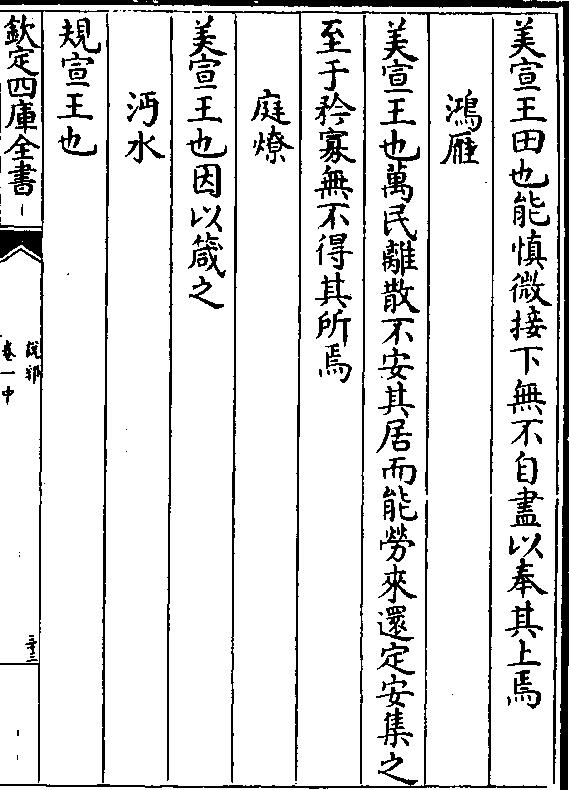 美宣王田也能慎微接下無不自盡以奉其上焉
鴻雁
美宣王也萬民離散不安其居而能勞來還定安集之
至于矜寡無不得其所焉
庭燎
美宣王也因以箴之
沔水
規宣王也
欽定四庫全書
說郛
卷一中
三十三